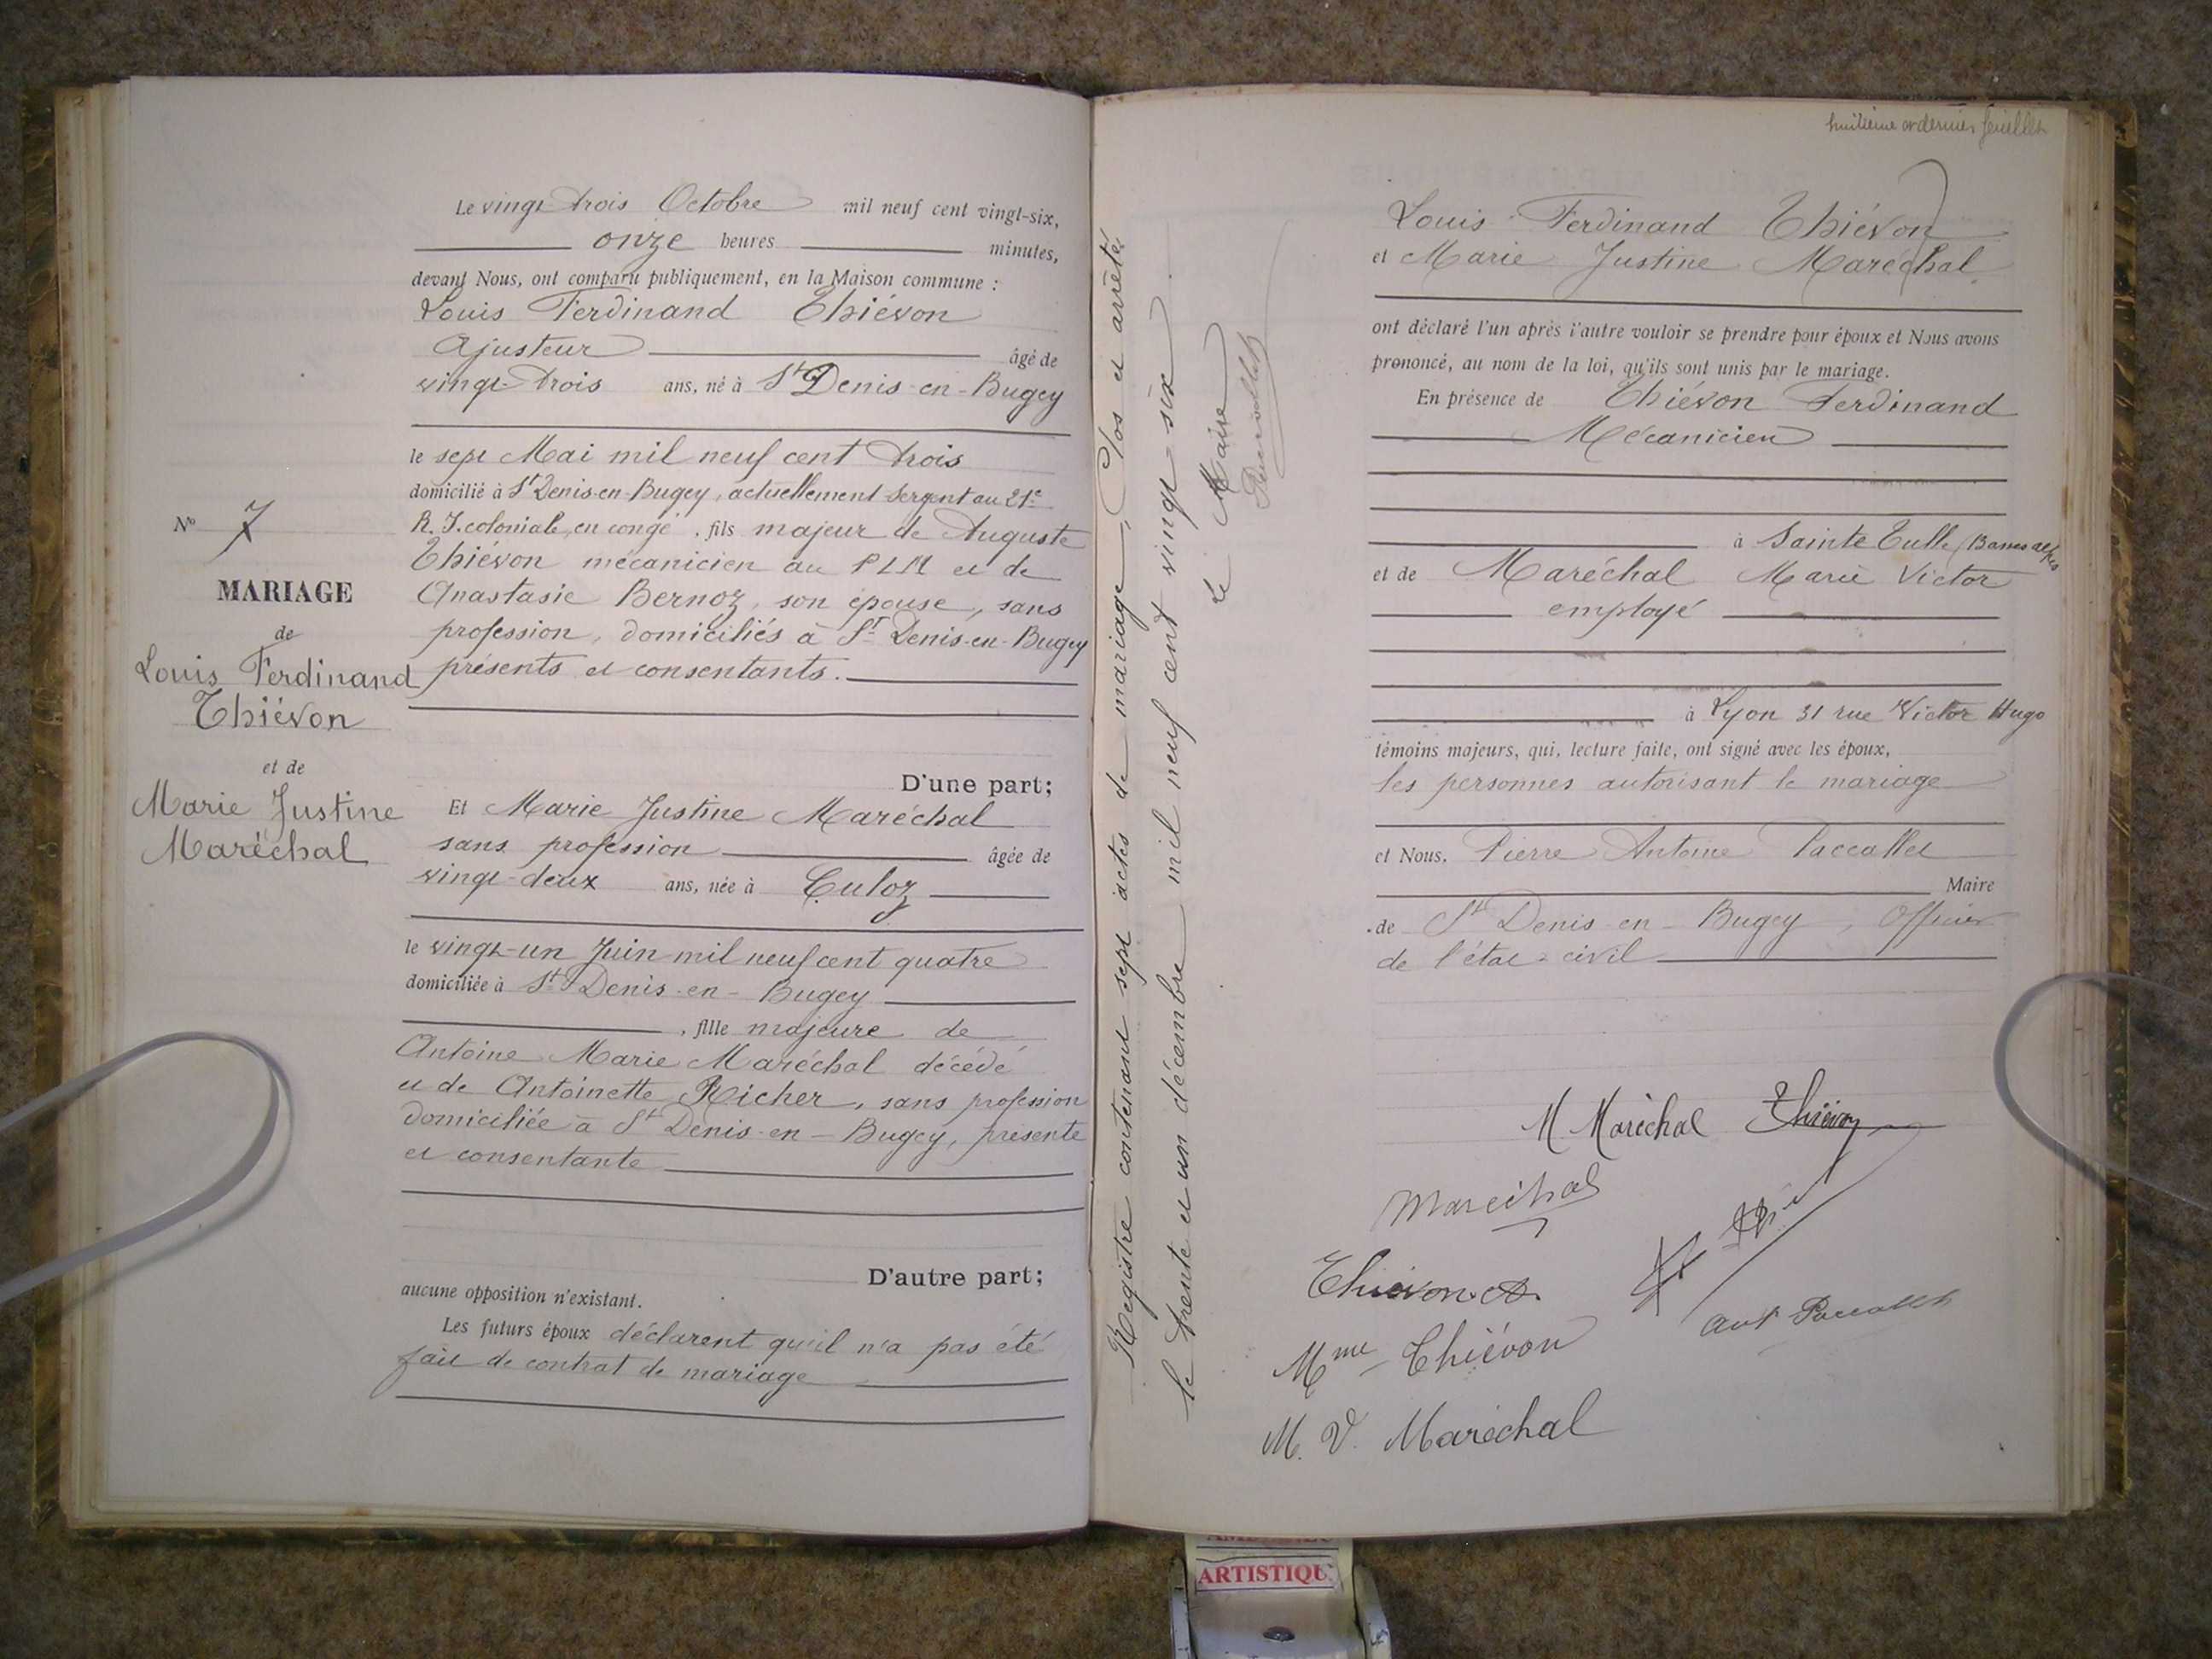 N° 7
MARIAGE
de
Louis Ferdinand
Thiévon
et de
Marie Justine
Maréchal
Le vingt-trois Octobre mil neuf cent vingt-six,
onze heures minutes,
devant Nous, ont comparu publiquement, en la Maison commune :
Louis Ferdinand Thiévon
Ajusteur âgé de
vingt-trois ans, né à St Denis-en-Bugey
le sept Mai mil neuf cent trois
domicilié à St Denis-en-Bugey, actuellement Sergent au 21e
R. I. coloniale, en congé, fils majeur de Auguste
Thiévon mécanicien au PLM et de
Anastasie Bernoz, son épouse, sans
profession, domiciliés à St Denis-en-Bugey
présents et consentants.
D'une part;
Et Marie Justine Maréchal
sans profession âgée de
vingt-deux ans, née à Culoz
le vingt-un Juin mil neuf cent quatre
domiciliée à St Denis-en-Bugey
, fille majeure de
Antoine Marie Maréchal décédé
et de Antoinette Richer, sans profession
domiciliée à St Denis-en-Bugey, présente
et consentante
D'autre part;
aucune opposition n'existant.
Les futurs époux déclarent qu'il n'a pas été
fait de contrat de mariage
Registre contenant sept actes de mariage, Clos et arrêté
le trente et un décembre mil neuf cent vingt-six
Le Maire
huitième et dernier feuillet
Louis Ferdinand Thiévon
et Marie Justine Maréchal
ont déclaré l'un après l'autre vouloir se prendre pour époux et Nous avons
prononcé, au nom de la loi, qu'ils sont unis par le mariage.
En présence de Thiévon Ferdinand
Mécanicien
à Sainte Tulle (Basses Alpes
et de Maréchal Marie Victor
employé
à Lyon 31 rue Victor Hugo
témoins majeurs, qui, lecture faite, ont signé avec les époux,
les personnes autorisant le mariage
et Nous, Pierre Antoine Paccallet
Maire
de St Denis-en-Bugey, Officier
de l'état-civil
M Maréchal Thiévon
Marechal
Thiévon A.
Mme Thiévon
Ant Paccallet
M. V. Maréchal
ARTISTIQU